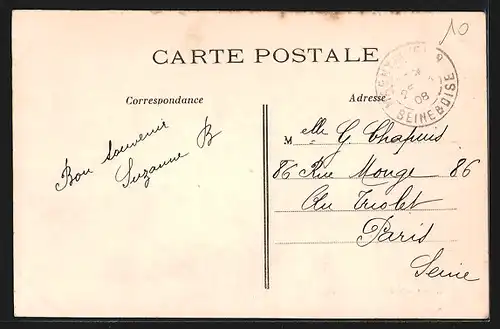 10
CARTE POSTALE
Correspondance
Adresse
08
SEINE & OISE
Bon souvenir
Suzanne B
Melle G Chapuis
86 Rue Monge 86
Au Triolet
Paris
Seine